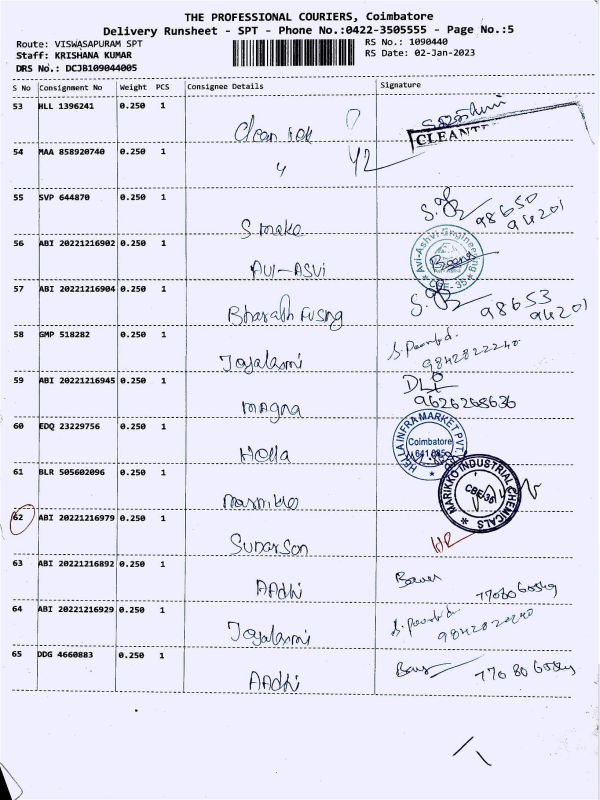 THE PROFESSIONAL COURIERS, Coimbatore
Delivery Runsheet - SPT - Phone No.:0422-3505555 - Page No.:5
Route: VISWASAPURAM SPT
Staff: KRISHANA KUMAR
DRS No.: DCJB109044005
RS No.: 1090440
RS Date: 02-Jan-2023
S No Consignment No Weight PCS Consignee Details Signature
53 HLL 1396241 0.250 1 Clean
CLEANT
54 MAA 858920740 0.250 1 "
55 SVP 644870 0.250 1 S make 98650 94201
56 ABI 20221216902 0.250 1 AVI-ASVI
Avi-Ashvi Engineering CBE-35
57 ABI 20221216904 0.250 1 Bharath Fusing 98653 94201
58 GMP 518282 0.250 1 Jojalaxmi 9842822240
59 ABI 20221216945 0.250 1 Magna 9626268636
60 EDQ 23229756 0.250 1 Hella
HELLA INFRA MARKET PVT. Coimbatore 641 035
61 BLR 505602096 0.250 1
MARIKKO INDUSTRIAL CHEMICALS CBE-35
62 ABI 20221216979 0.250 1 Sunarson
63 ABI 20221216892 0.250 1 AAdhi
64 ABI 20221216929 0.250 1 Jojalaxmi 9842822240
65 DDG 4660883 0.250 1 AAdhi